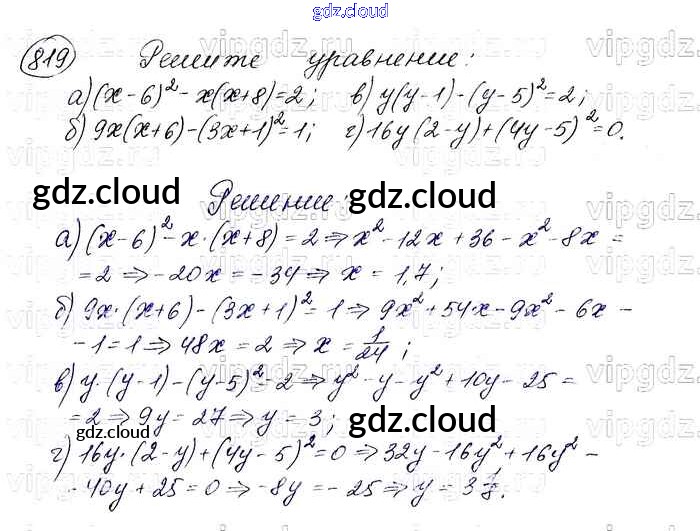 gdz.cloud
819 Решите уравнение:
а) (x-6)² - x(x+8)=2; в) y(y-1)-(y-5)²=2;
б) 9x(x+6)-(3x+1)²=1; г) 16y(2-y)+(4y-5)²=0.
gdz.cloud Решение: gdz.cloud
а) (x-6)² - x·(x+8) = 2 ⇒ x² - 12x + 36 - x² - 8x =
= 2 ⇒ -20x = -34 ⇒ x = 1,7;
б) 9x·(x+6) - (3x+1)² = 1 ⇒ 9x² + 54x - 9x² - 6x -
- 1 = 1 ⇒ 48x = 2 ⇒ x = 1/24;
в) y·(y-1) - (y-5)² = 2 ⇒ y² - y - y² + 10y - 25 =
= 2 ⇒ 9y = 27 ⇒ y = 3;
gdz.cloud gdz.cloud
г) 16y·(2-y) + (4y-5)² = 0 ⇒ 32y - 16y² + 16y² -
- 40y + 25 = 0 ⇒ -8y = -25 ⇒ y = 3 1/8.
vipgdz